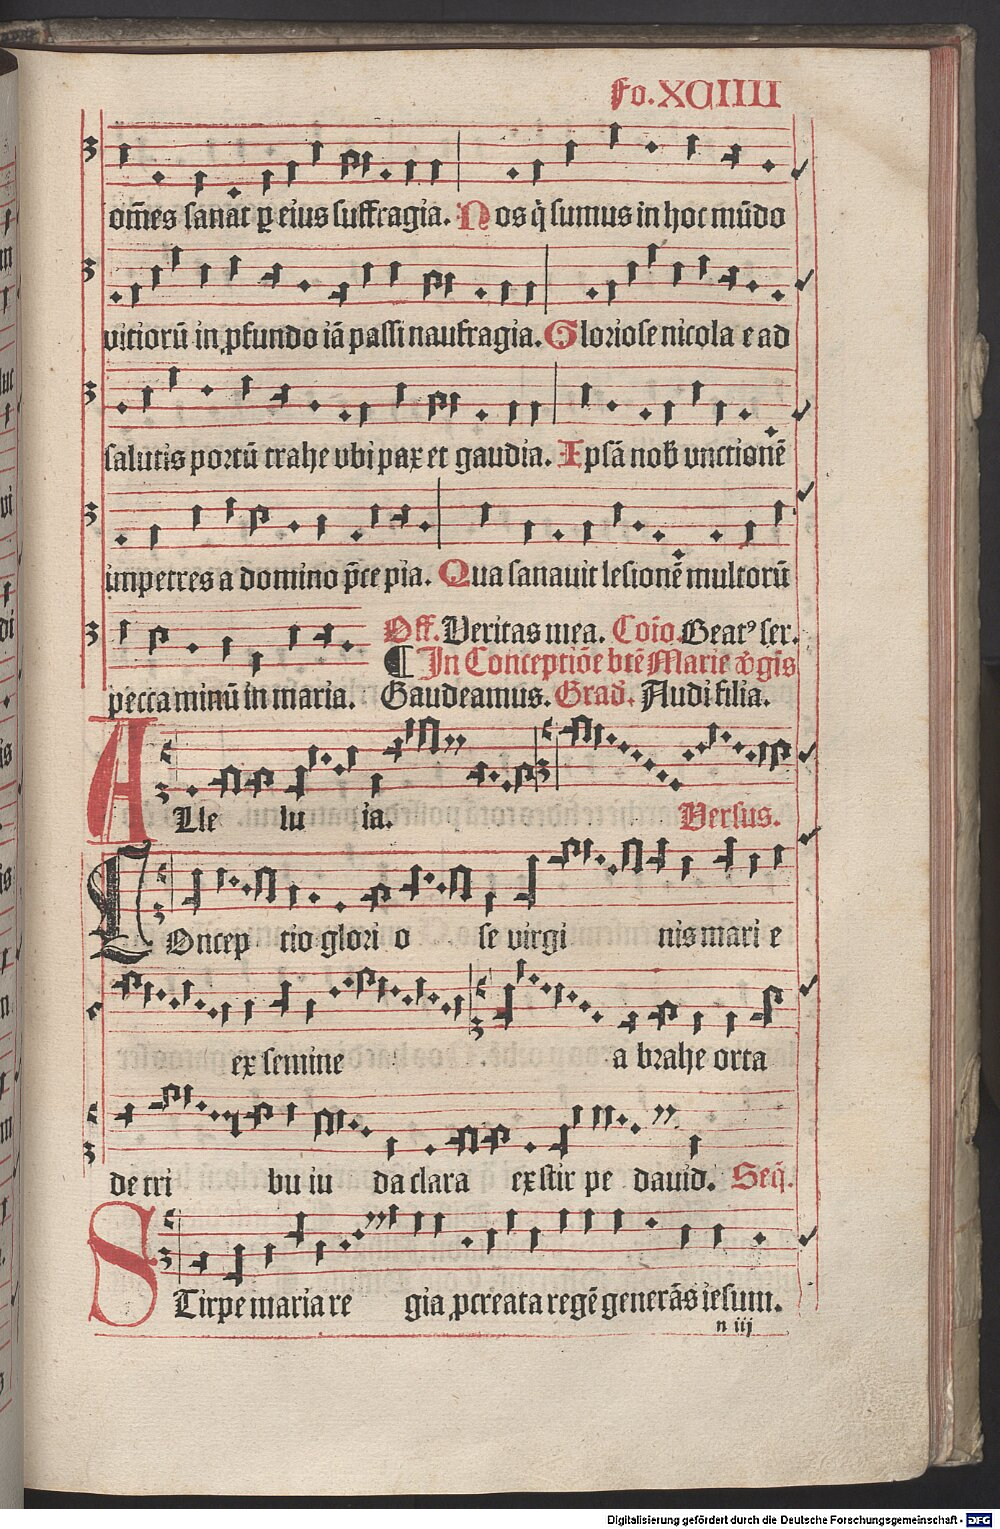 Fo. XCIIII
om̃es sanãt ꝑ eius suffragia. Nos q̃ sumus in hoc mũdo
vitiorũ in ꝓfundo iã passi naufragia. Gloriose nicola e ad
salutis portũ trahe vbi pax et gaudia. Ipsã nob̃ vnctionẽ
impetres a domino p̃ce pia. Qua sanauit lesionẽ multorũ
peccaminũ in maria.
Off. Veritas mea. Coĩo. Beatꝰ ser.
¶ In Conceptiõe btẽ Marie v̾gis
Gaudeamus. Grad̾. Audi filia.
Alle lu ia. Versus.
COncep tio glori o se virgi nis mari e
ex semine a brahe orta
de tri bu iu da clara ex stir pe dauid. Seq̃.
STirpe maria re gia ꝓcreata regẽ generãs iesum.
n iij
Digitalisierung gefördert durch die Deutsche Forschungsgemeinschaft - DFG